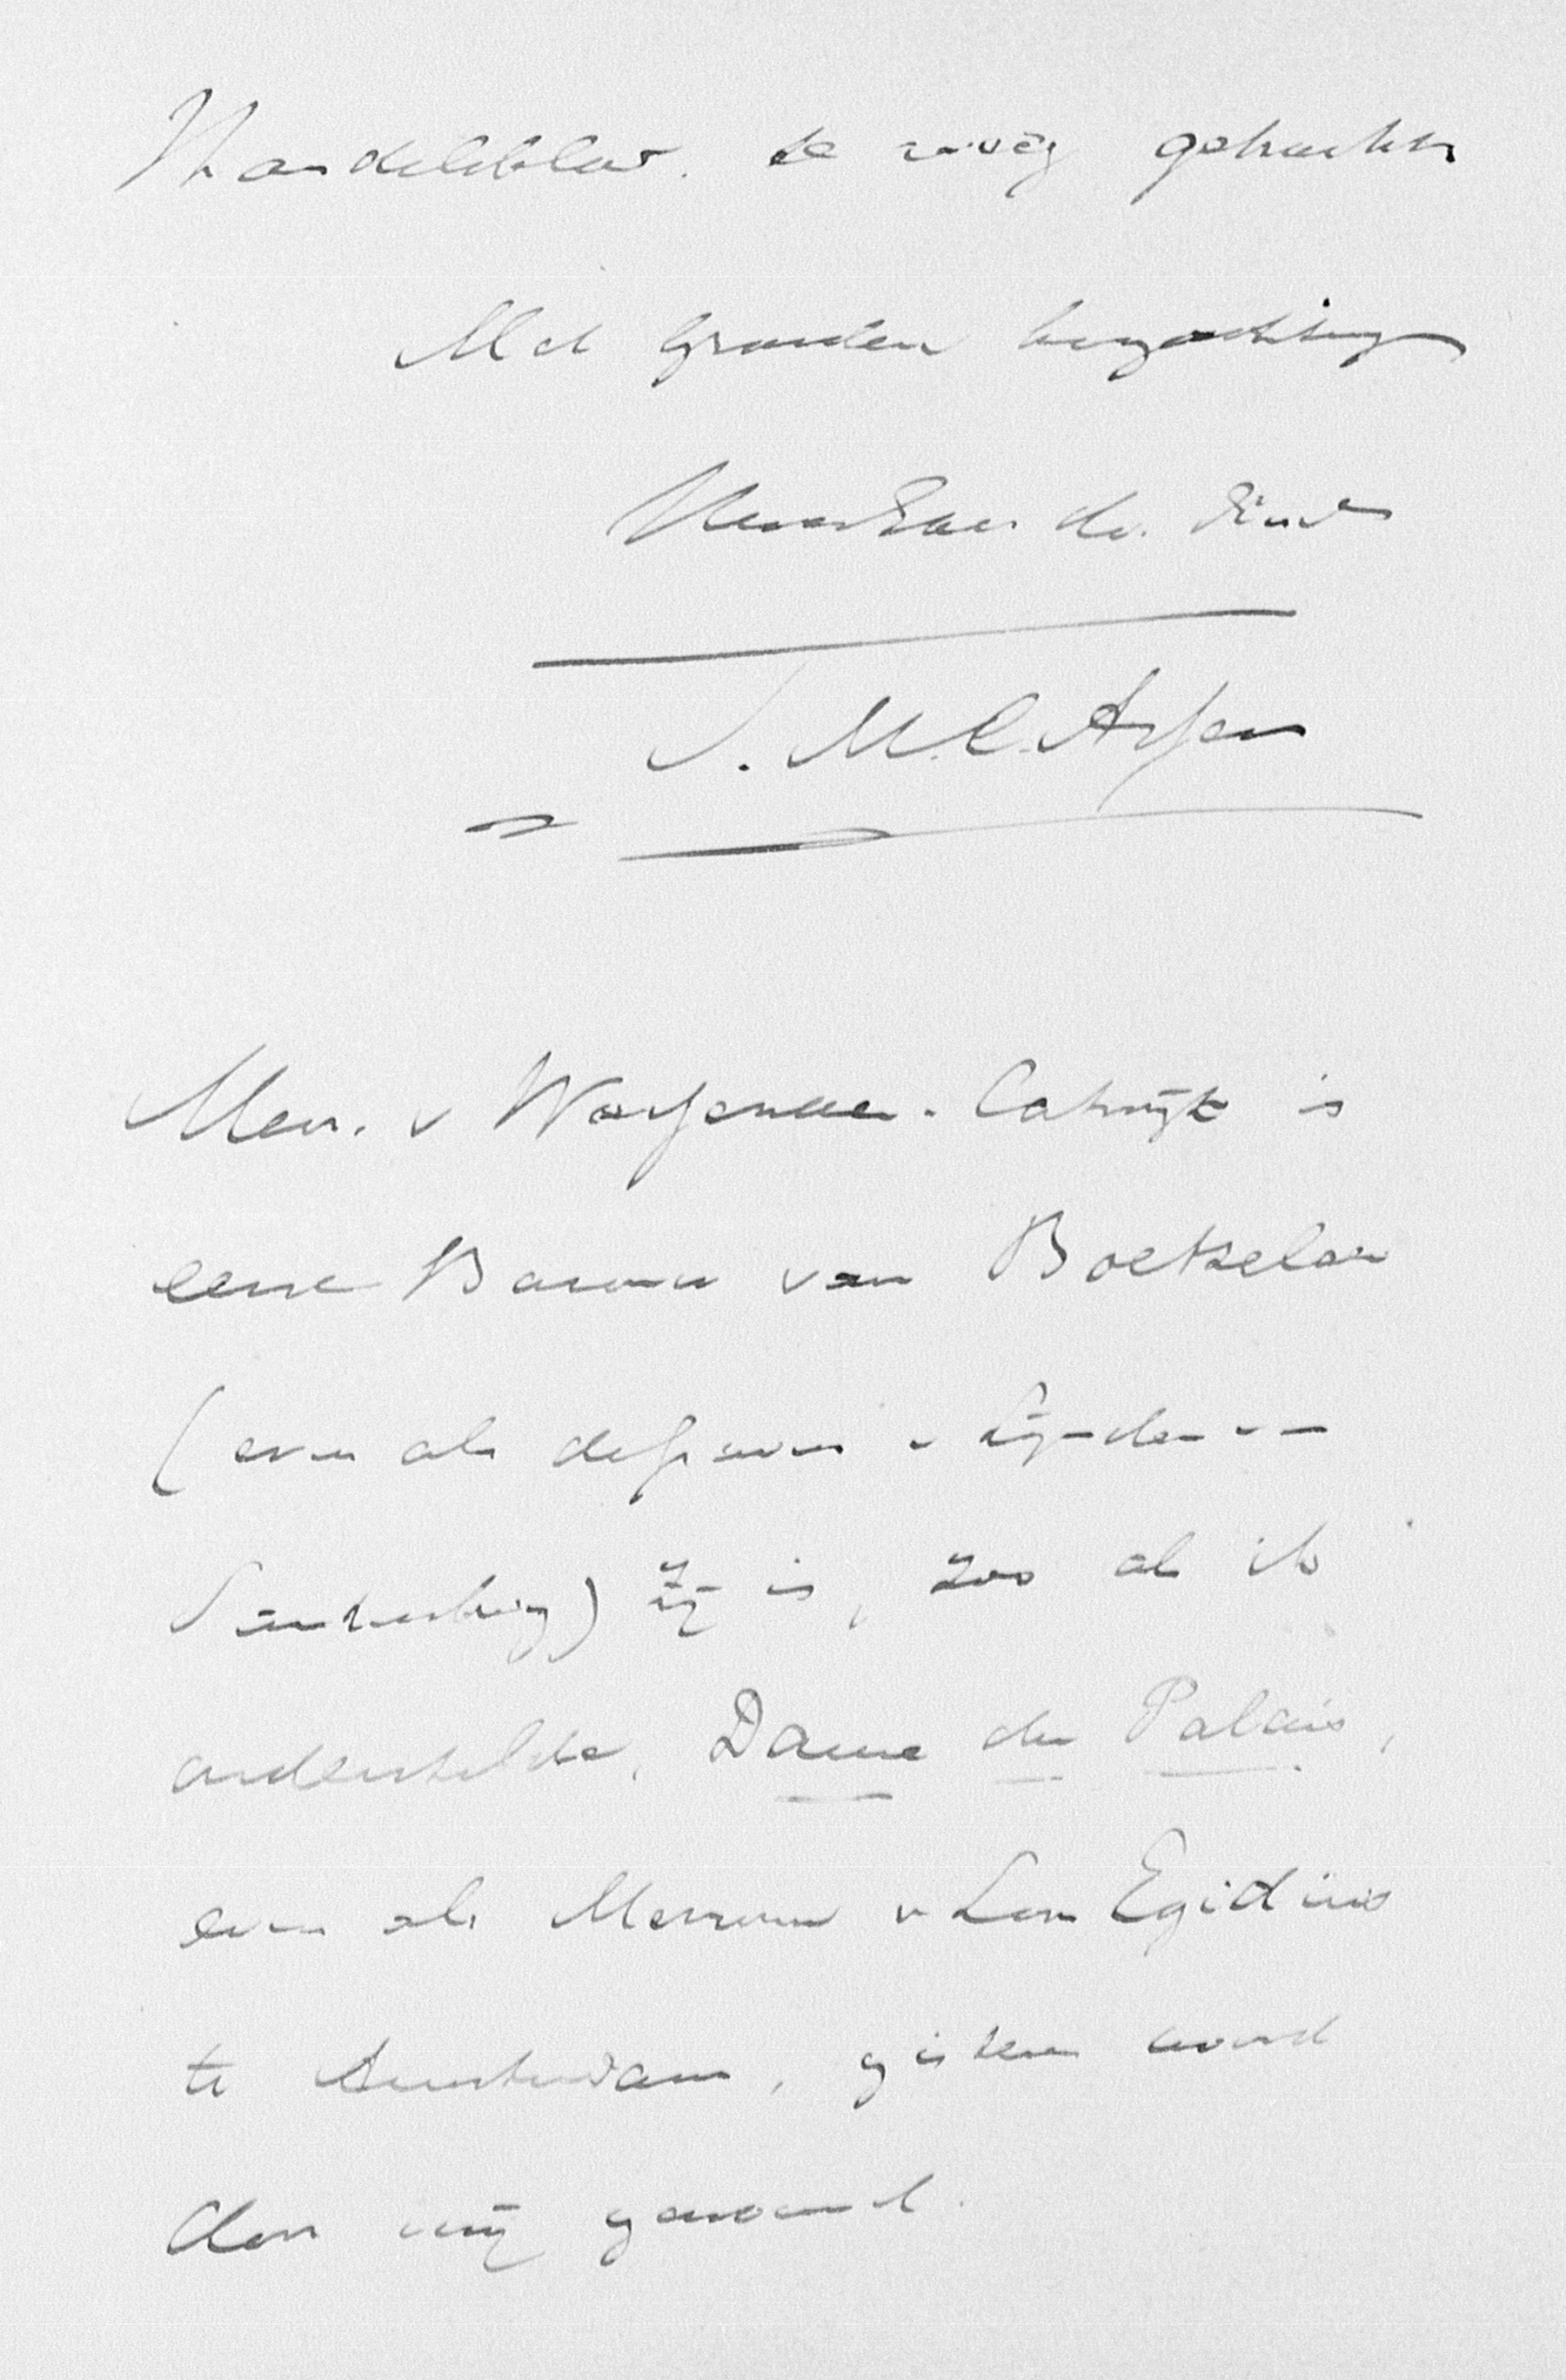 Handelsblad. te vroeg getrouwen
Met groeten hoogachting
UwEdel. dv. Dien
J. M. C. Asser
Mevr. v Wassenaer. Catwijk is
eene Barones van Boetzelaer
(even als deszwen v Lynden v
Sandenburg) Zij is, zoo als ik
onderstelde, Dame du Palais,
even als Mevrouw v Loon Egidius
te Amsterdam, gisteren avond
door mij genoemd.